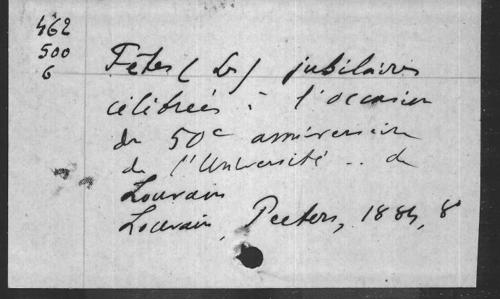 462
500
6
Fêtes (Les) jubilaires
célébrées à l'occasion
du 50e anniversaire
de l'Université .. de
Louvain
Louvain, Peeters, 1884, 8°